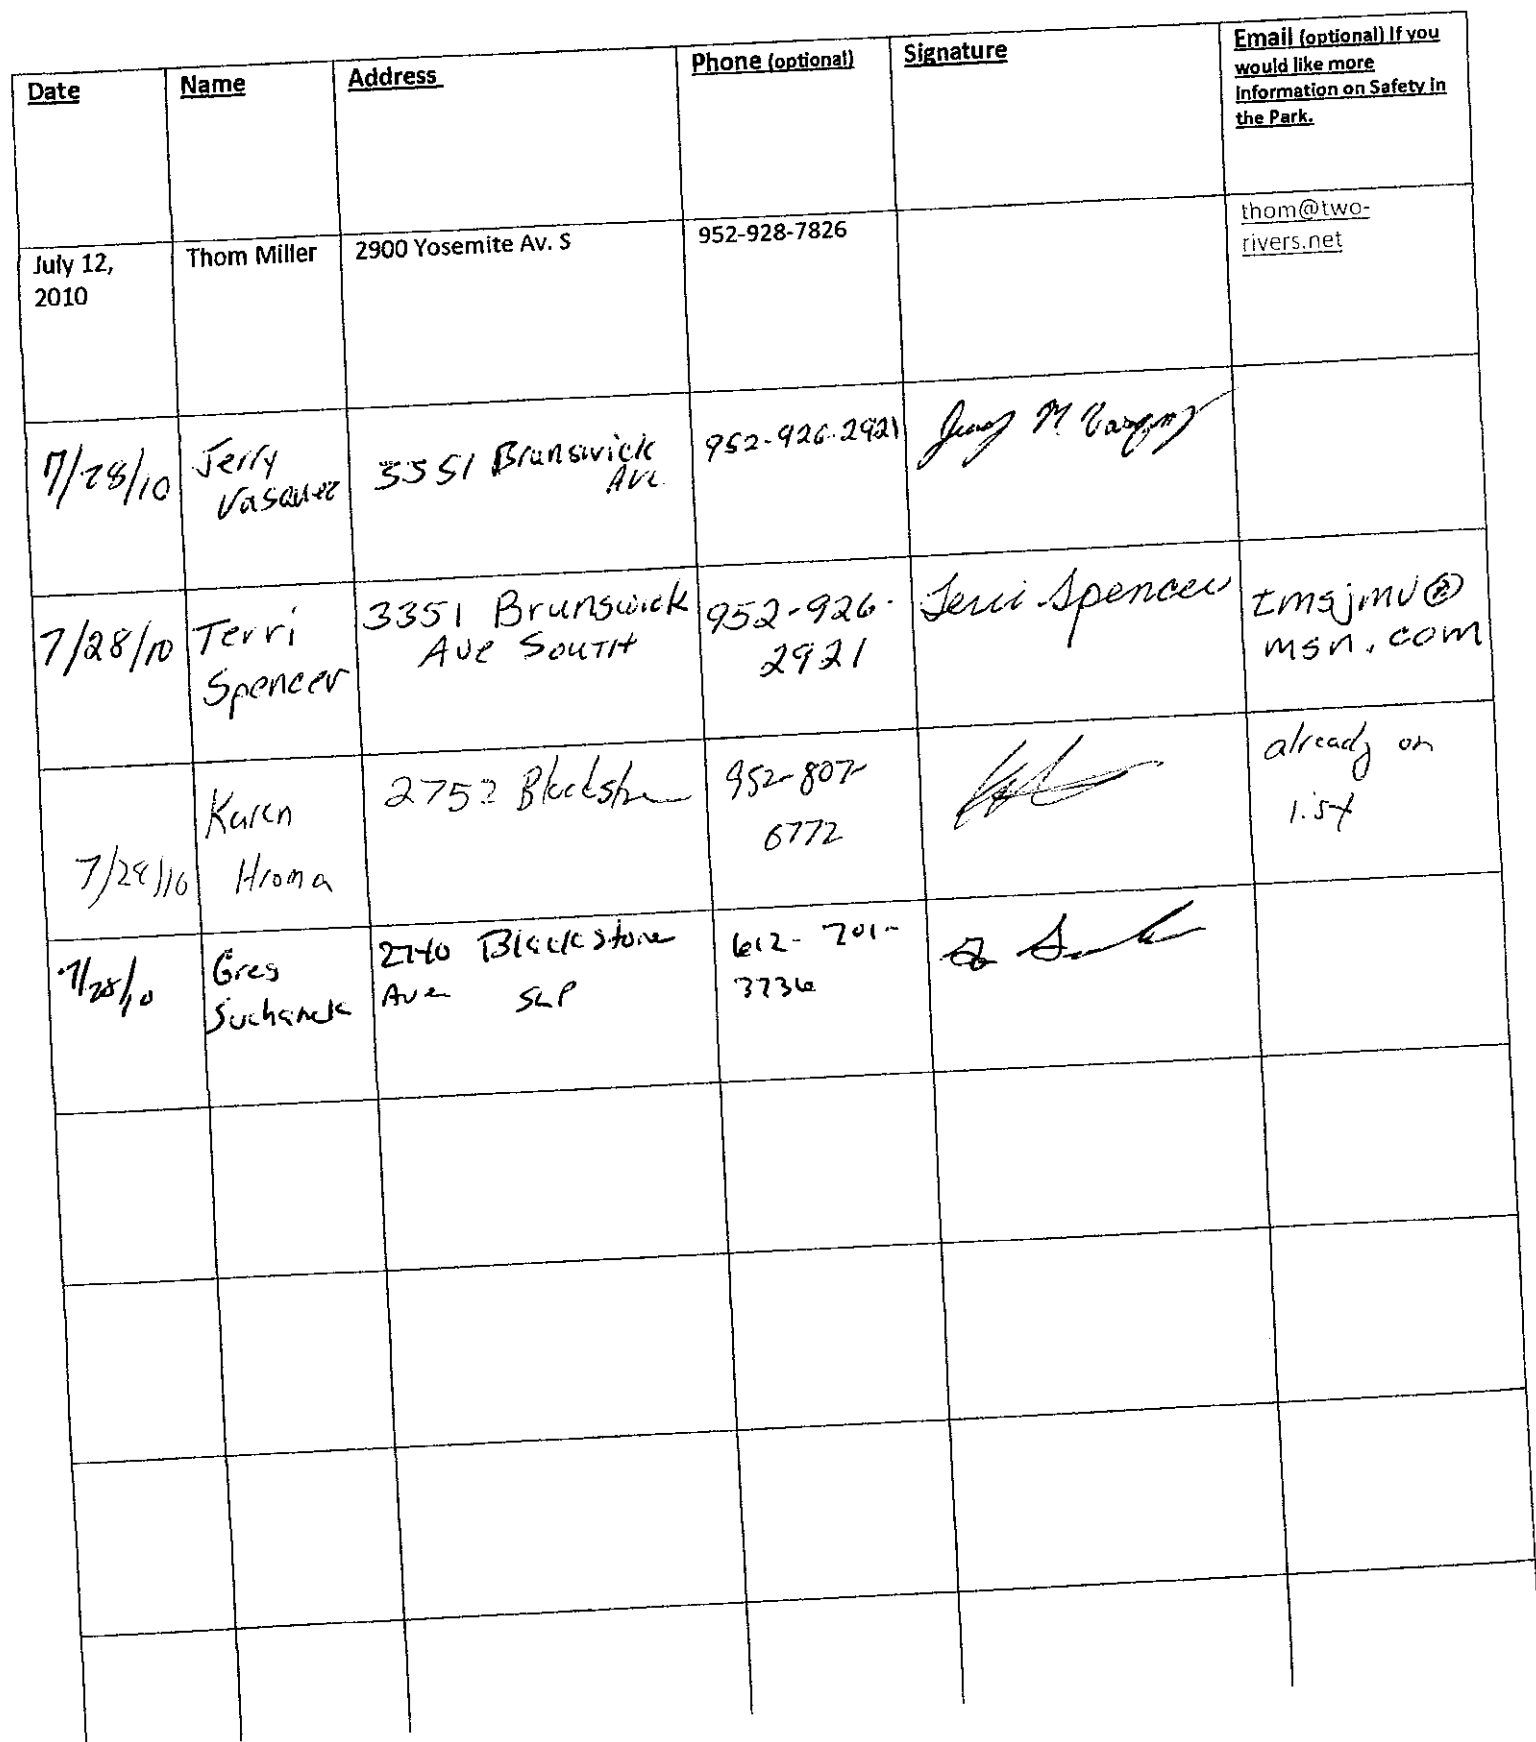 Date
Name
Address
Phone (optional)
Signature
Email (optional) If you
would like more
Information on Safety in
the Park.
July 12,
2010
Thom Miller
2900 Yosemite Av. S
952-928-7826
thom@two-
rivers.net
7/28/10
Jerry
Vasquez
3351 Brunswick
Ave
952-926-2921
Jerry M Vasquez
7/28/10
Terri
Spencer
3351 Brunswick
Ave South
952-926-
2921
Terri Spencer
tmsjmv@
msn.com
7/28/10
Karen
Hroma
2752 Blackstone
952-807-
6772
already on
list
7/28/10
Greg
Suchanek
2740 Blackstone
Ave SLP
612-701-
3736